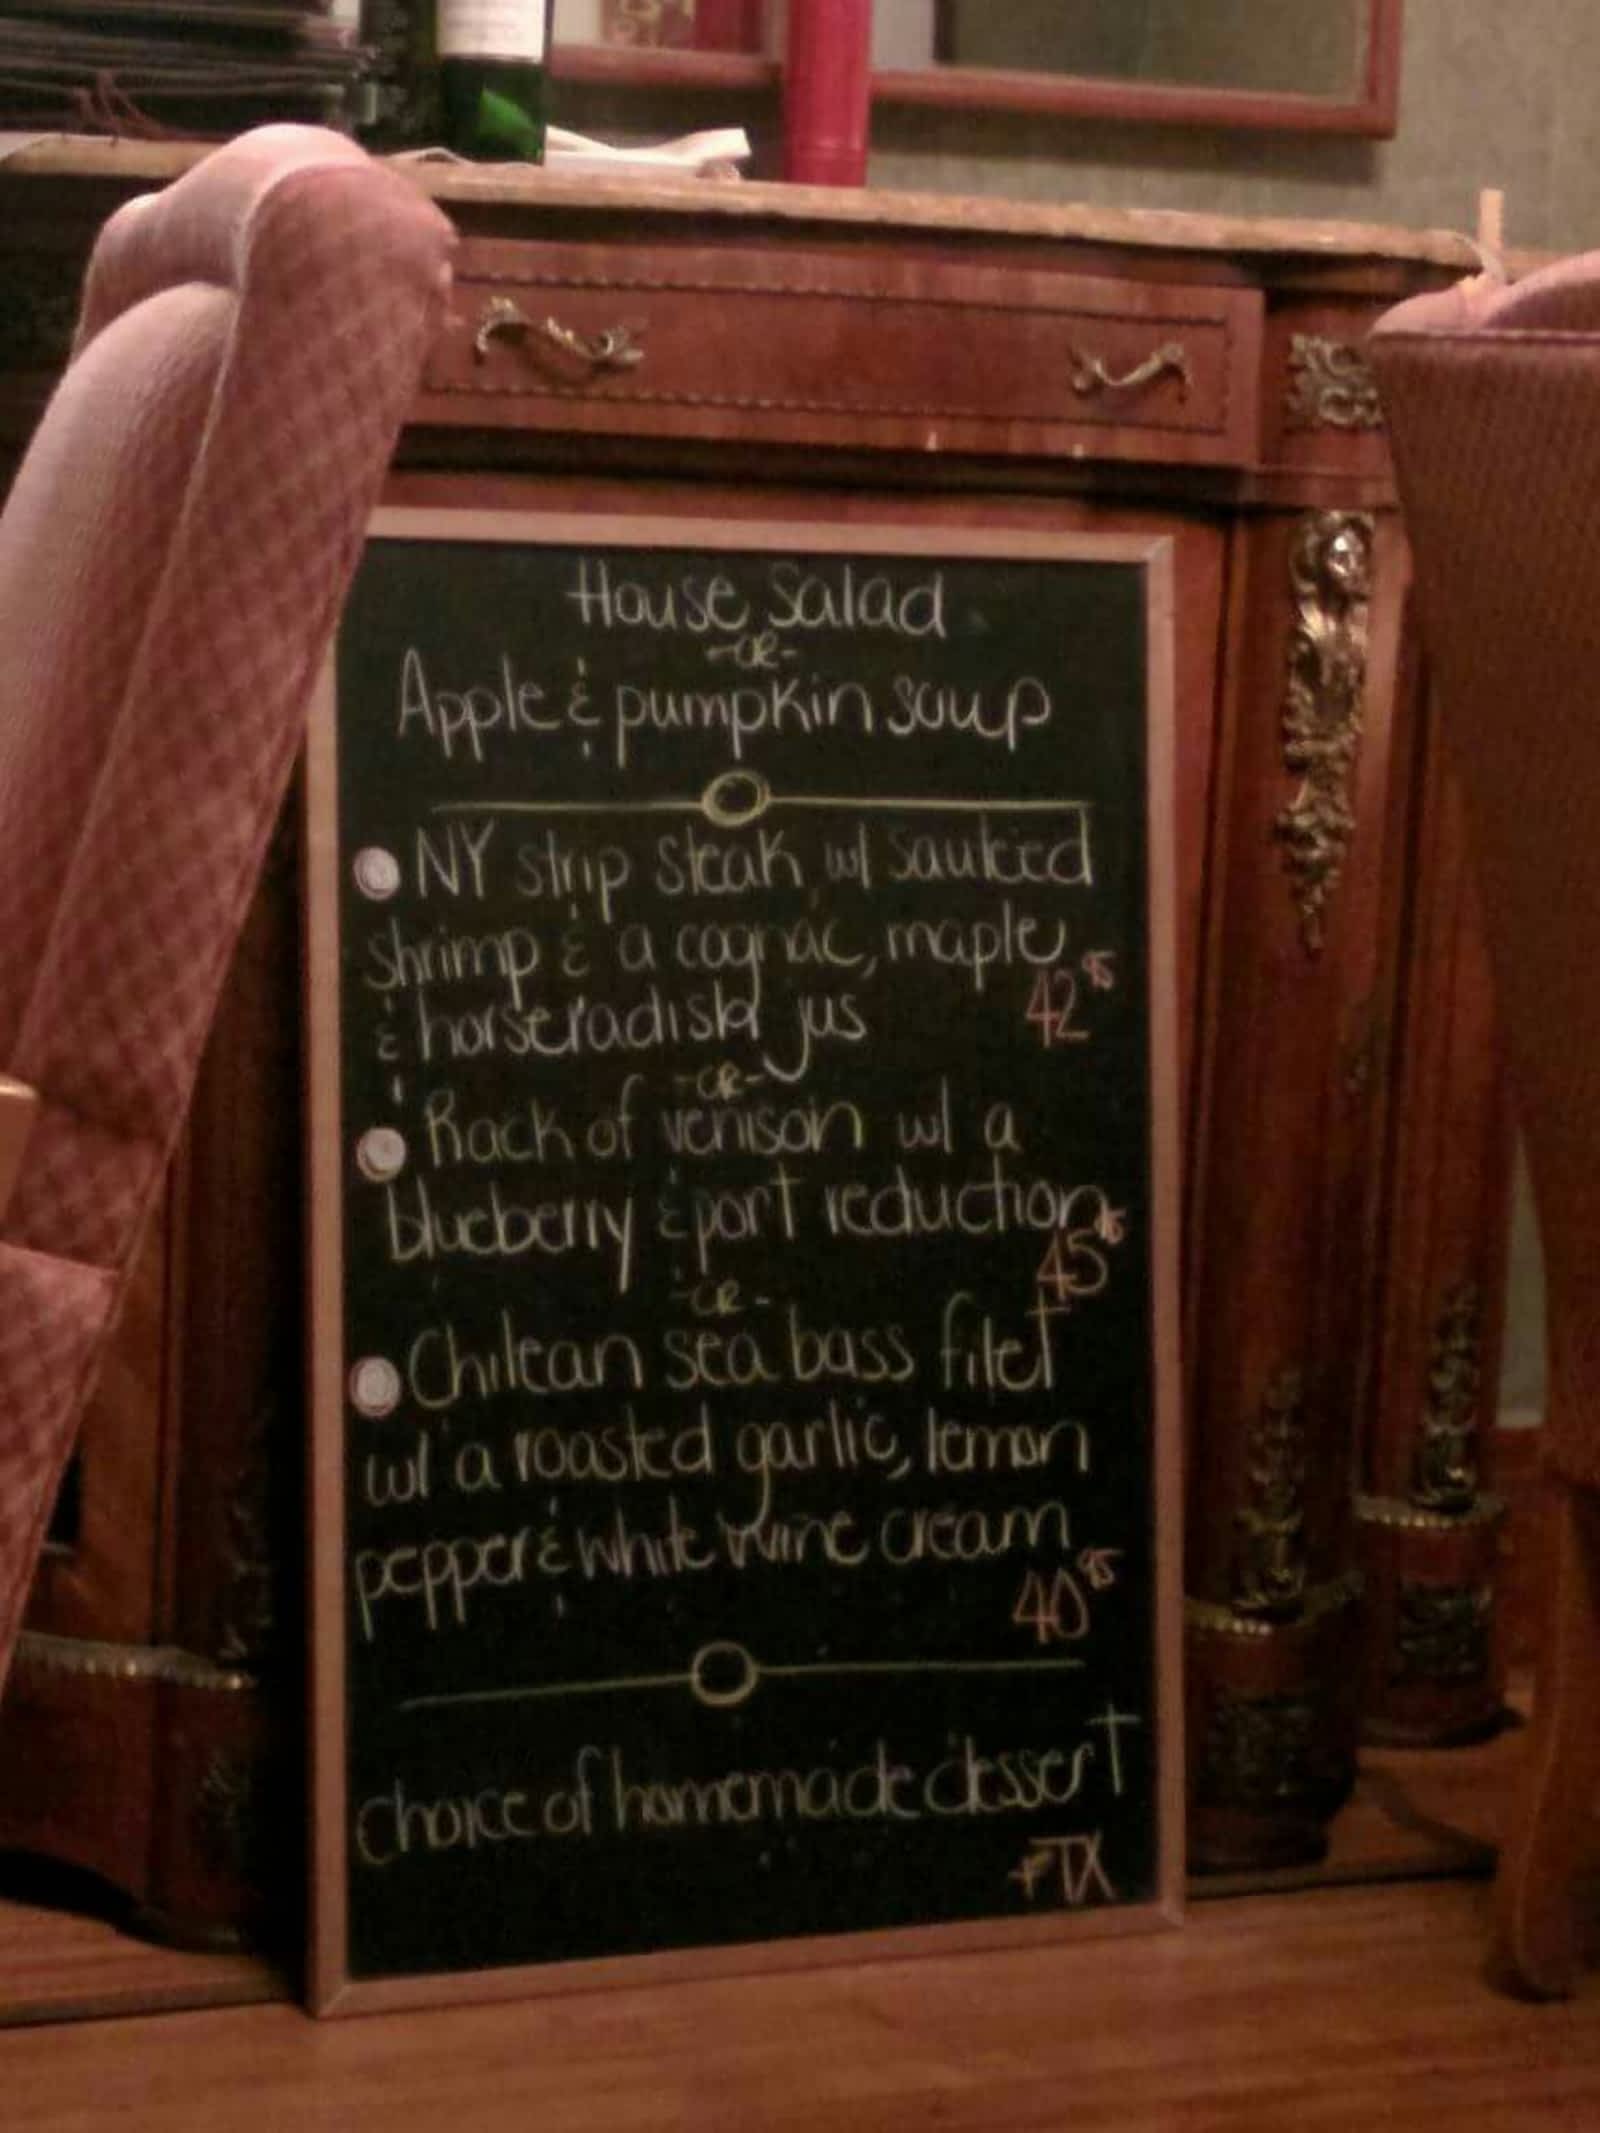 House Salad
-OR-
Apple & pumpkin soup
NY strip steak w/ sauteed
shrimp & a cognac, maple
& horseradish jus 42 95
-OR-
Rack of venison w/ a
blueberry & port reduction
45 95
-OR-
Chilean sea bass filet
w/ a roasted garlic, lemon
pepper & white wine cream
40 95
choice of homemade dessert
+TX